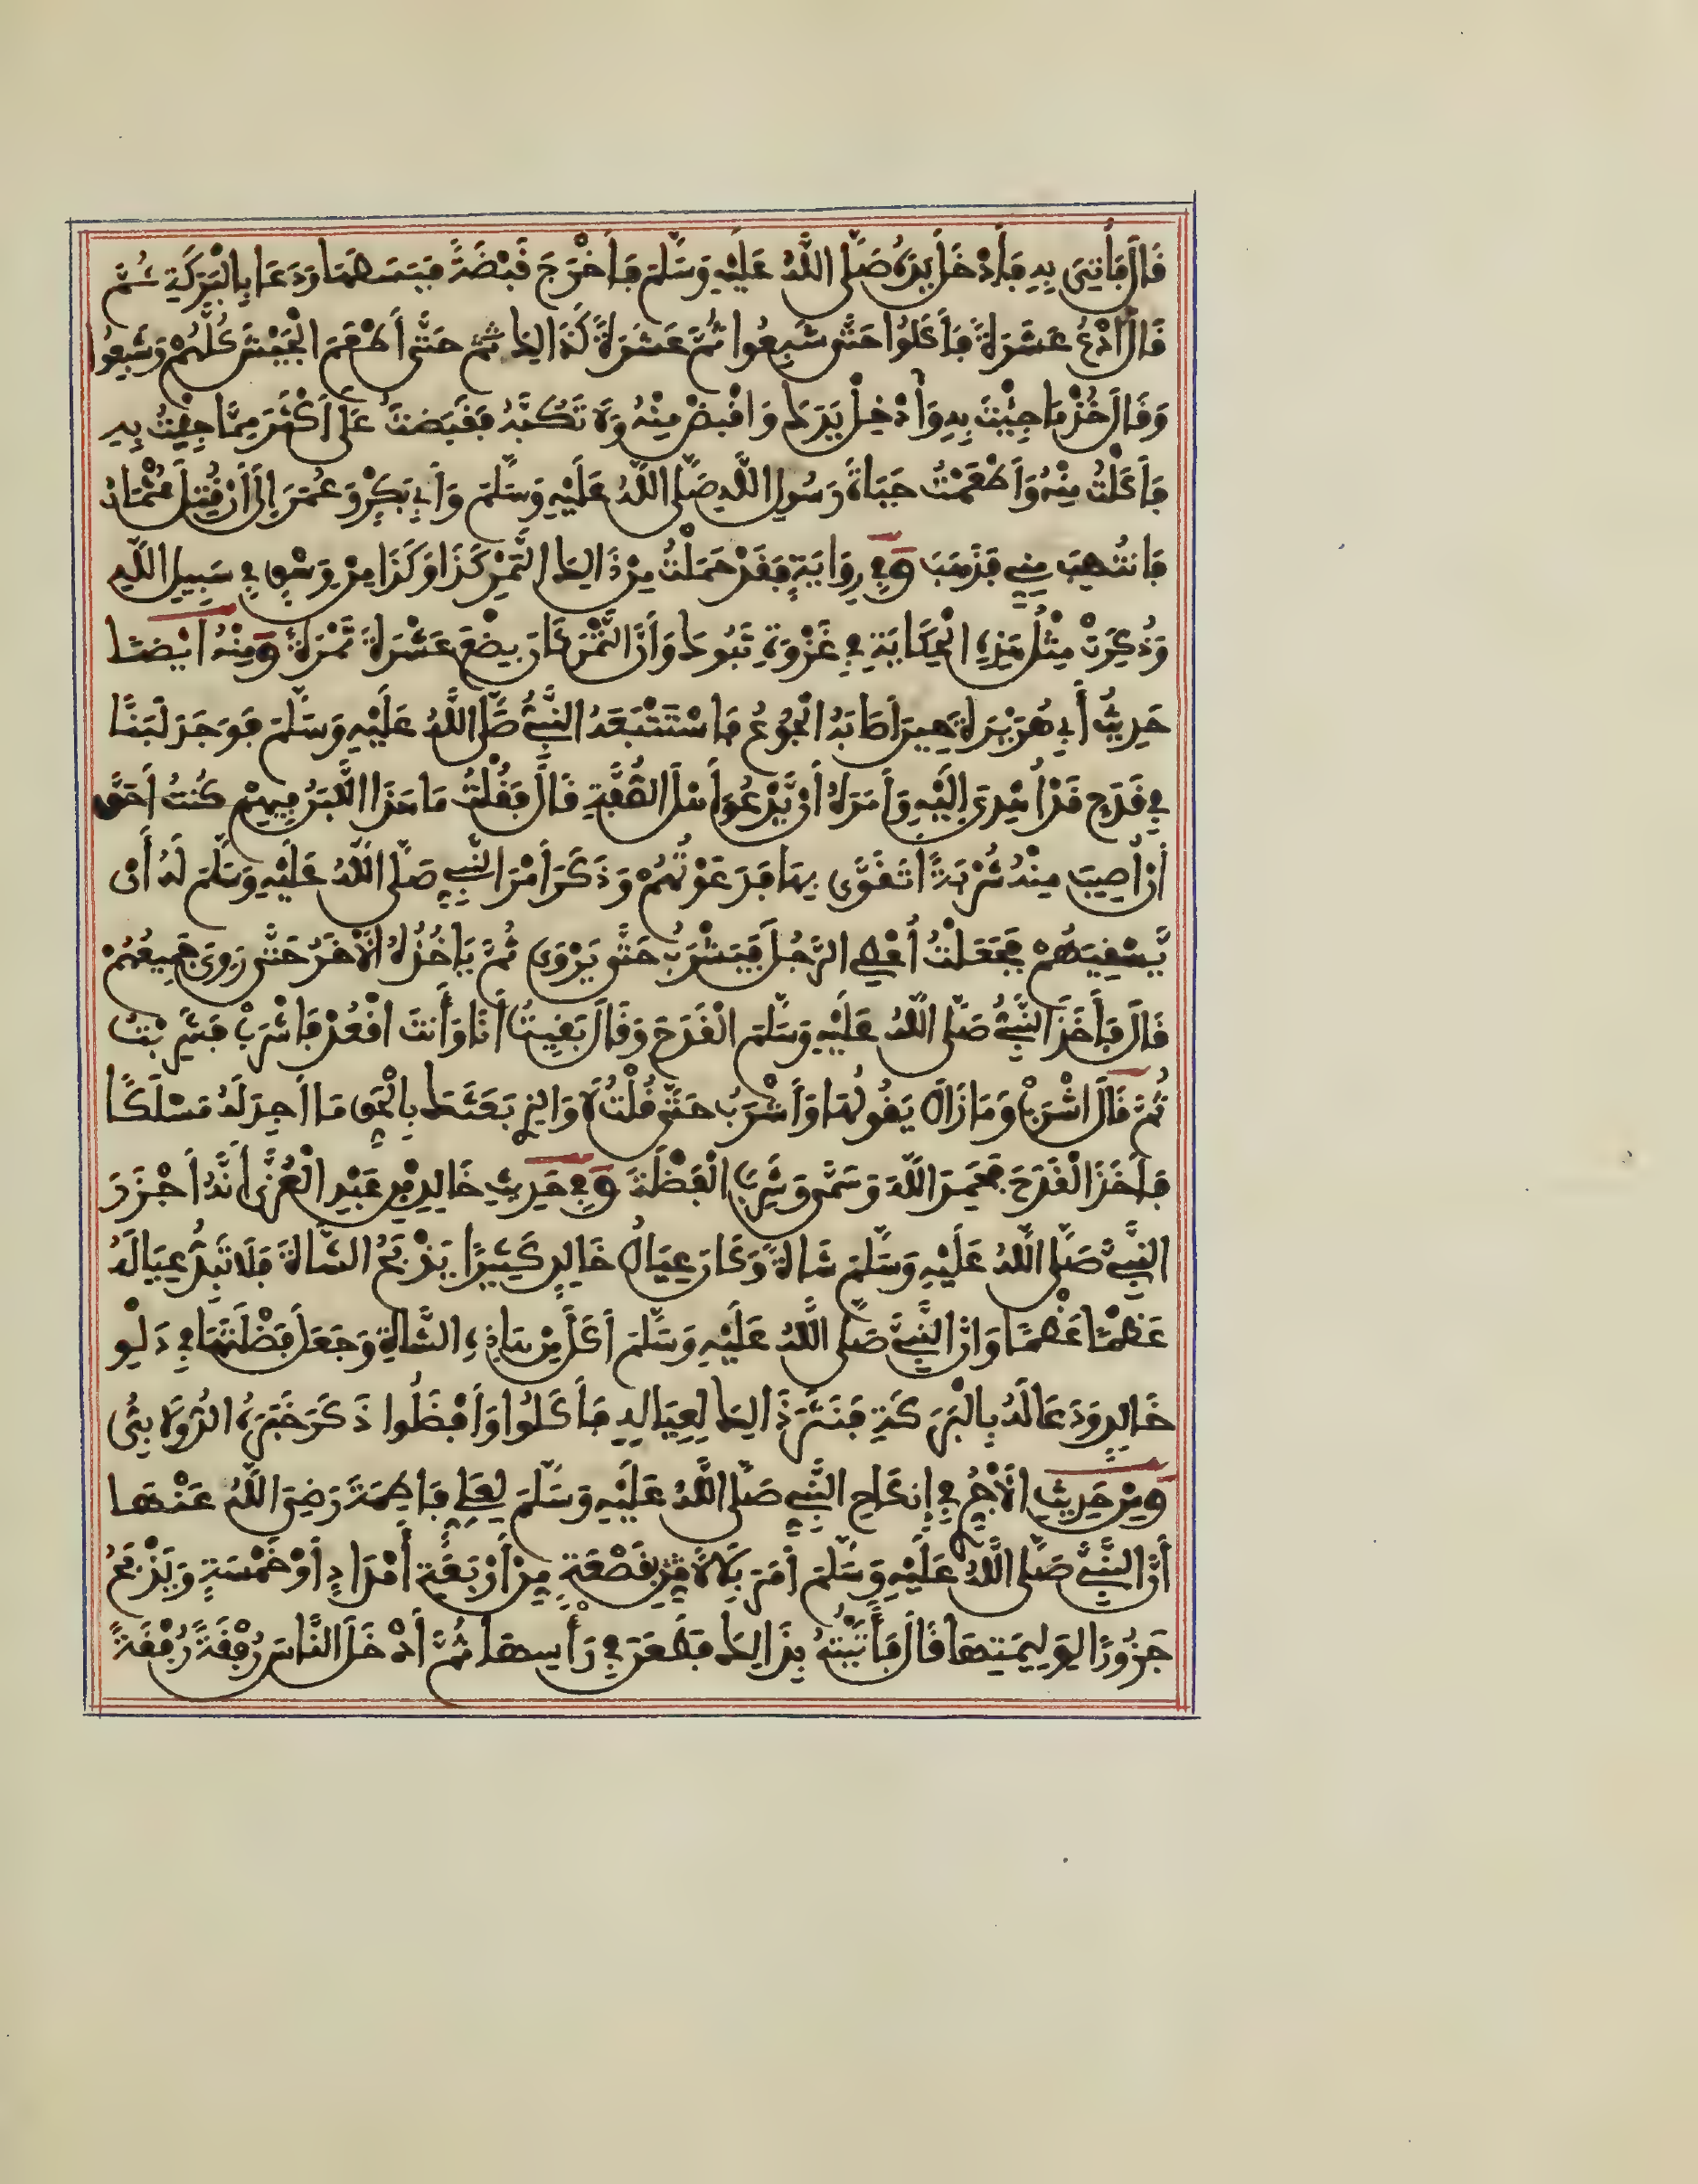 قَالَ فَأْتِنِي بِهِ فَأَدْخَلَ يَدَهُ صَلَّى اللَّهُ عَلَيْهِ وَسَلَّمَ فَأَخْرَجَ قَبْضَةً فَبَسَطَهَا وَدَعَا بِالْبَرَكَةِ ثُمَّ
قَالَ ادْعُ عَشَرَةً فَأَكَلُوا حَتَّى شَبِعُوا ثُمَّ عَشَرَةً كَذَالِكَ ثُمَّ حَتَّى أَطْعَمَ الْجَيْشَ كُلَّهُمْ وَشَبِعُوا
وَقَالَ خُذْ مَا جِئْتَ بِهِ وَأَدْخِلْ يَدَكَ وَاقْبِضْ مِنْهُ وَلَا تَكُبَّهُ فَقَبَضْتُ عَلَى أَكْثَرَ مِمَّا جِئْتُ بِهِ
فَأَكَلْتُ مِنْهُ وَأَطْعَمْتُ حَيَاةَ رَسُولِ اللَّهِ صَلَّى اللَّهُ عَلَيْهِ وَسَلَّمَ وَأَبِي بَكْرٍ وَعُمَرَ إِلَى أَنْ قُتِلَ عُثْمَانُ
فَانْتُهِبَ مِنِّي فَذَهَبَ وَفِي رِوَايَةٍ فَقَدْ حَمَلْتُ مِنْ ذَالِكَ التَّمْرِ كَذَا وَكَذَا مِنْ وَسْقٍ فِي سَبِيلِ اللَّهِ
وَذُكِرَتْ مِثْلُ هَذِهِ الْحِكَايَةِ فِي غَزْوَةِ تَبُوكَ وَأَنَّ التَّمْرَ كَانَ بِضْعَ عَشْرَةَ تَمْرَةً وَمِنْهُ أَيْضًا
حَدِيثُ أَبِي هُرَيْرَةَ حِينَ أَصَابَهُ الْجُوعُ فَاسْتَتْبَعَهُ النَّبِيُّ صَلَّى اللَّهُ عَلَيْهِ وَسَلَّمَ فَوَجَدَ لَبَنًا
فِي قَدَحٍ قَدْ أُهْدِيَ إِلَيْهِ وَأَمَرَهُ أَنْ يَدْعُوَ أَهْلَ الصُّفَّةِ قَالَ فَقُلْتُ مَا هَذَا اللَّبَنُ فِيهِمْ كُنْتُ أَحَقَّ
أَنْ أُصِيبَ مِنْهُ شُرْبَةً أَتَقَوَّى بِهَا فَدَعَوْتُهُمْ وَذَكَرَ أَمْرَ النَّبِيِّ صَلَّى اللَّهُ عَلَيْهِ وَسَلَّمَ لَهُ أَنْ
يَسْقِيَهُمْ فَجَعَلْتُ أُعْطِي الرَّجُلَ فَيَشْرَبُ حَتَّى يَرْوَى ثُمَّ يَأْخُذُهُ الْآخَرُ حَتَّى رَوِيَ جَمِيعُهُمْ
قَالَ فَأَخَذَ النَّبِيُّ صَلَّى اللَّهُ عَلَيْهِ وَسَلَّمَ الْقَدَحَ وَقَالَ بَقِيتُ أَنَا وَأَنْتَ اقْعُدْ فَاشْرَبْ فَشَرِبْتُ
ثُمَّ قَالَ اشْرَبْ وَمَا زَالَ يَقُولُهَا وَأَشْرَبُ حَتَّى قُلْتُ لَا وَالَّذِي بَعَثَكَ بِالْحَقِّ مَا أَجِدُ لَهُ مَسْلَكًا
فَأَخَذَ الْقَدَحَ فَحَمِدَ اللَّهَ وَسَمَّى وَشَرِبَ الْفَضْلَةَ وَفِي حَدِيثِ خَالِدِ بْنِ عَبْدِ الْعُزَّى أَنَّهُ أَجْزَرَ
النَّبِيَّ صَلَّى اللَّهُ عَلَيْهِ وَسَلَّمَ شَاةً وَكَانَ عِيَالُ خَالِدٍ كَثِيرًا يَذْبَحُ الشَّاةَ فَلَا تُبِدُّ عِيَالَهُ
عَظْمًا عَظْمًا وَأَنَّ النَّبِيَّ صَلَّى اللَّهُ عَلَيْهِ وَسَلَّمَ أَكَلَ مِنْ هَاذِهِ الشَّاةِ وَجَعَلَ فَضْلَتَهَا فِي دَلْوِ
خَالِدٍ وَدَعَا لَهُ بِالْبَرَكَةِ فَنَثَرَ ذَالِكَ لِعِيَالِهِ فَأَكَلُوا وَأَفْضَلُوا ذَكَرَ خَبَرَهُ الدُّولَابِيُّ
وَمِنْ حَدِيثِ الْآجُرِّيِّ فِي إِنْكَاحِ النَّبِيِّ صَلَّى اللَّهُ عَلَيْهِ وَسَلَّمَ لِعَلِيٍّ فَاطِمَةَ رَضِيَ اللَّهُ عَنْهَا
أَنَّ النَّبِيَّ صَلَّى اللَّهُ عَلَيْهِ وَسَلَّمَ أَمَرَ بِلَالًا بِقَصْعَةٍ مِنْ أَرْبَعَةِ أَمْدَادٍ أَوْ خَمْسَةٍ وَيَذْبَحُ
جَزُورًا لِوَلِيمَتِهَا قَالَ فَأَتَيْتُهُ بِذَالِكَ فَطَعَنَ فِي رَأْسِهَا ثُمَّ أَدْخَلَ النَّاسَ رُفْقَةً رُفْقَةً